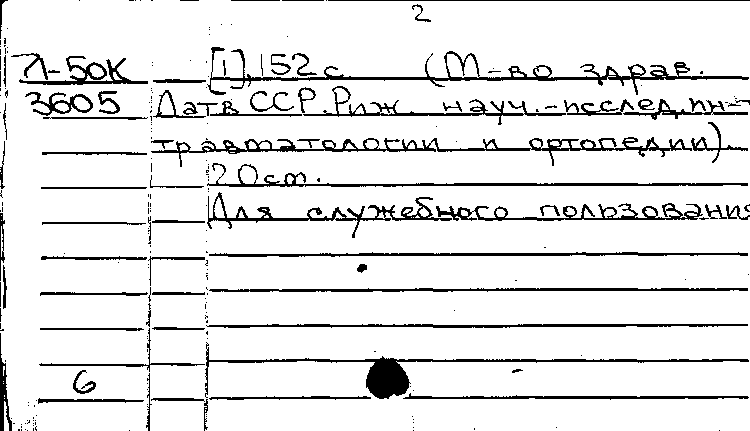 2
Л-50К [1], 152 с. (М-во здрав.
3605 Латв ССР. Риж. науч.-исслед. ин-т
травматологии и ортопедии).
20 cm.
Для служебного пользования
6